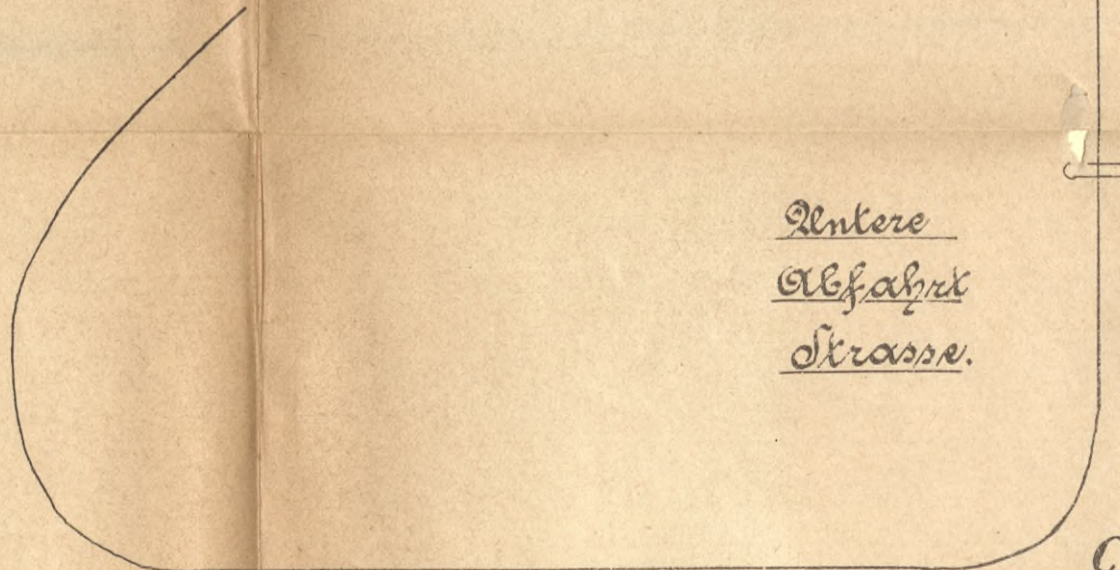 Untere
Abfahrt
Strasse.